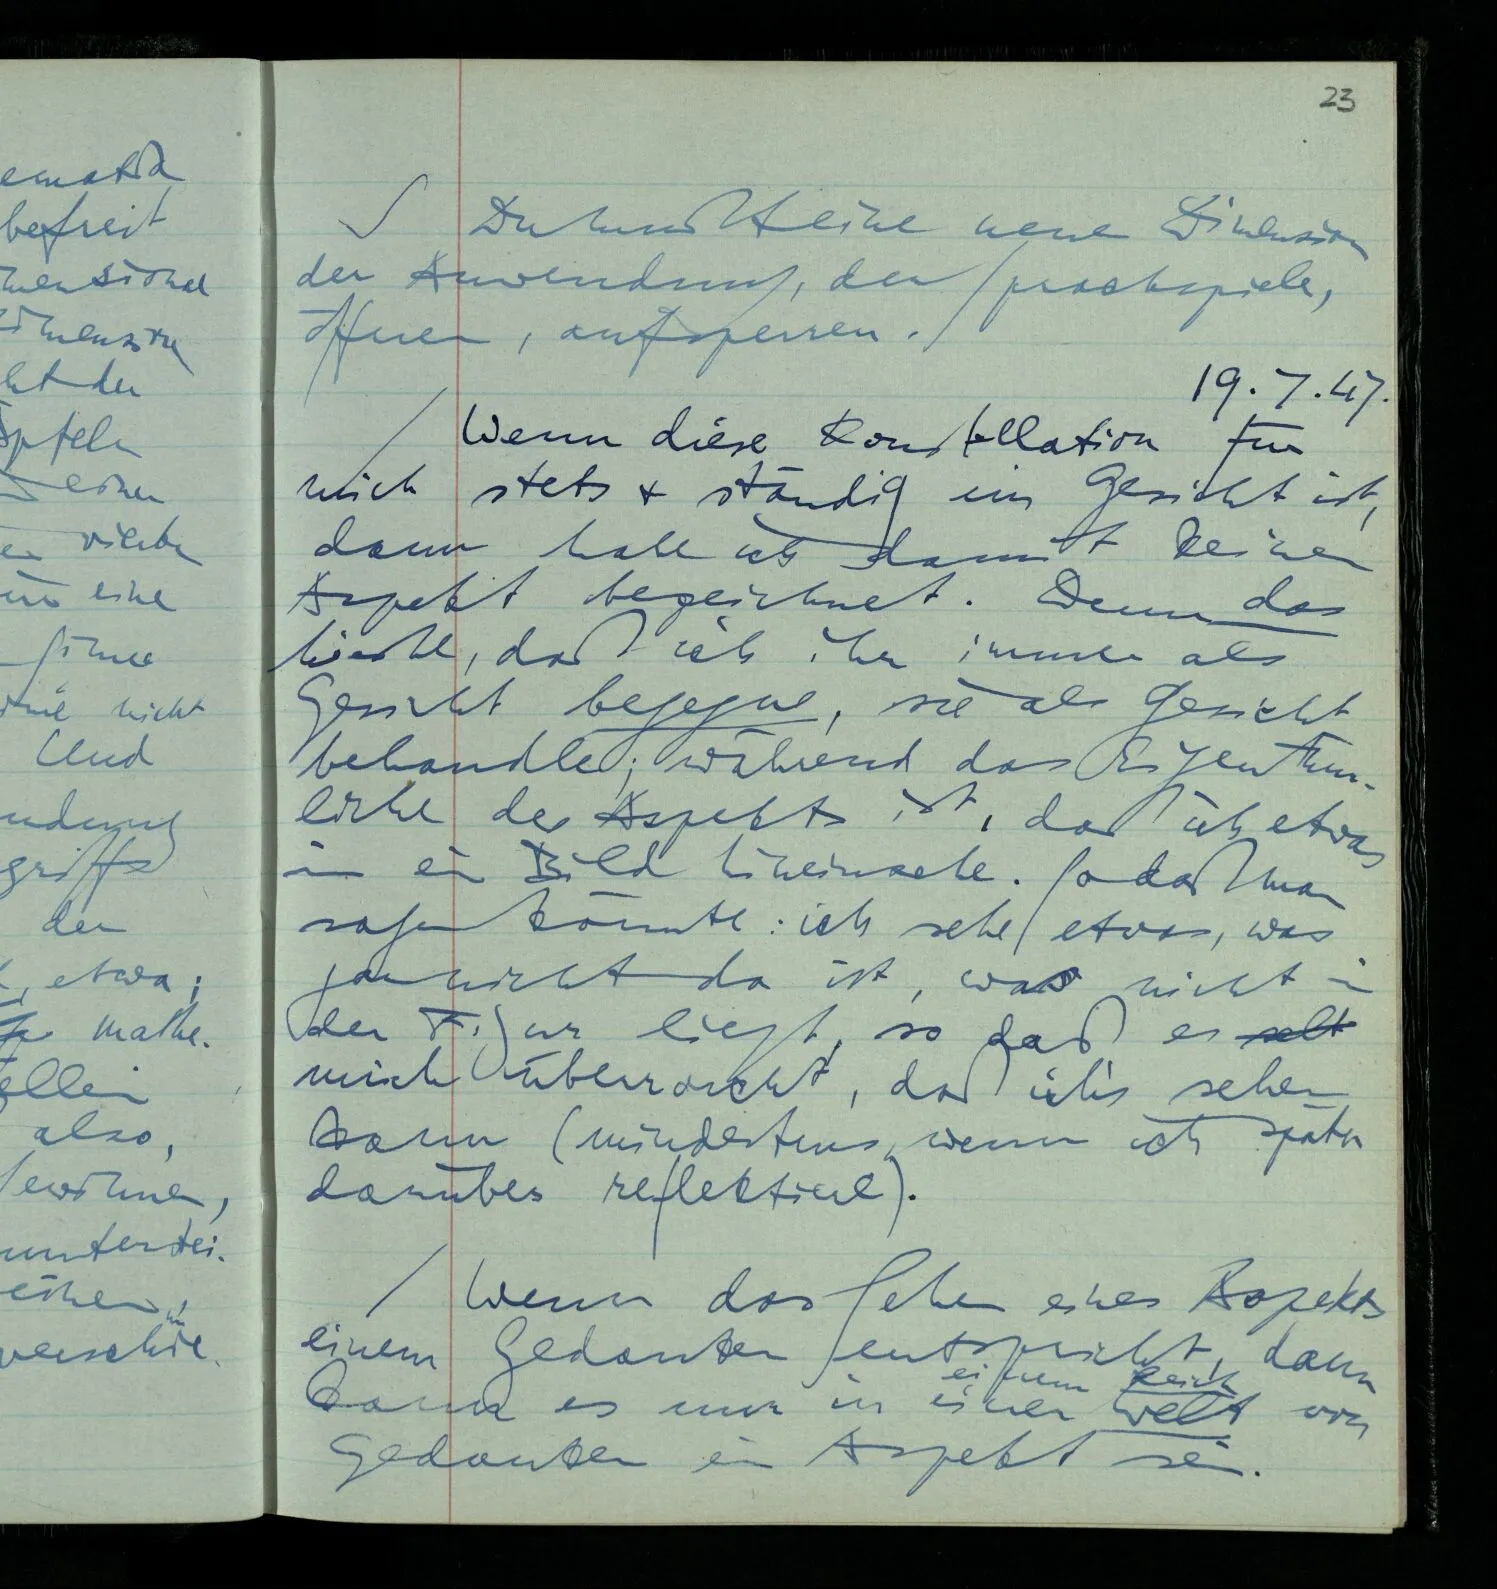 23
ematik
befreit
mensional
Dimension
ht der
Äpfeln
einer
eine
nicht
Und
endung
griffs
der
etwa;
mathe-
ellen
also,
verschie-
∫ Du mußt eine neue Dimension
der Anwendung, der Sprachspiele,
öffnen, aufsperren.
19.7.47.
/ Wenn diese Konstellation für
mich stets & ständig ein Gesicht ist,
dann habe ich damit keinen
Aspekt bezeichnet. Denn das
hieße, daß ich ihr immer als
Gesicht begegne, sie als Gesicht
behandle; während das Eigentüm-
liche des Aspekts ist, daß ich etwas
in ein Bild hineinsehe. So daß man
sagen könnte: ich sehe etwas, was
garnicht da ist, was nicht in
der Figur liegt, so daß es selt
mich überrascht, daß ich's sehen
kann (mindestens, wenn ich später
darüber reflektiere).
/ Wenn das Sehen eines Aspekts
einem Gedanken entspricht, dann
einem Reich
kann es nur in einer Welt von
Gedanken ein Aspekt sein.